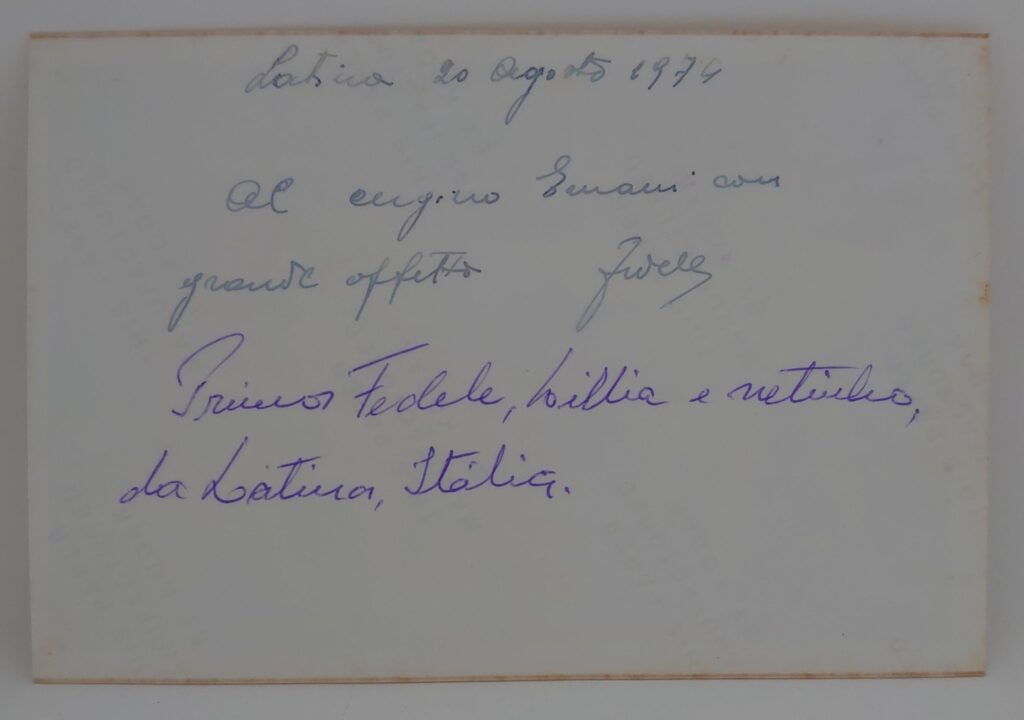 Latina 20 Agosto 1974
Al cugino Ernani con
grande affetto Fidele
Primos Fedele, Lillia e netinho,
da Latina, Itália.